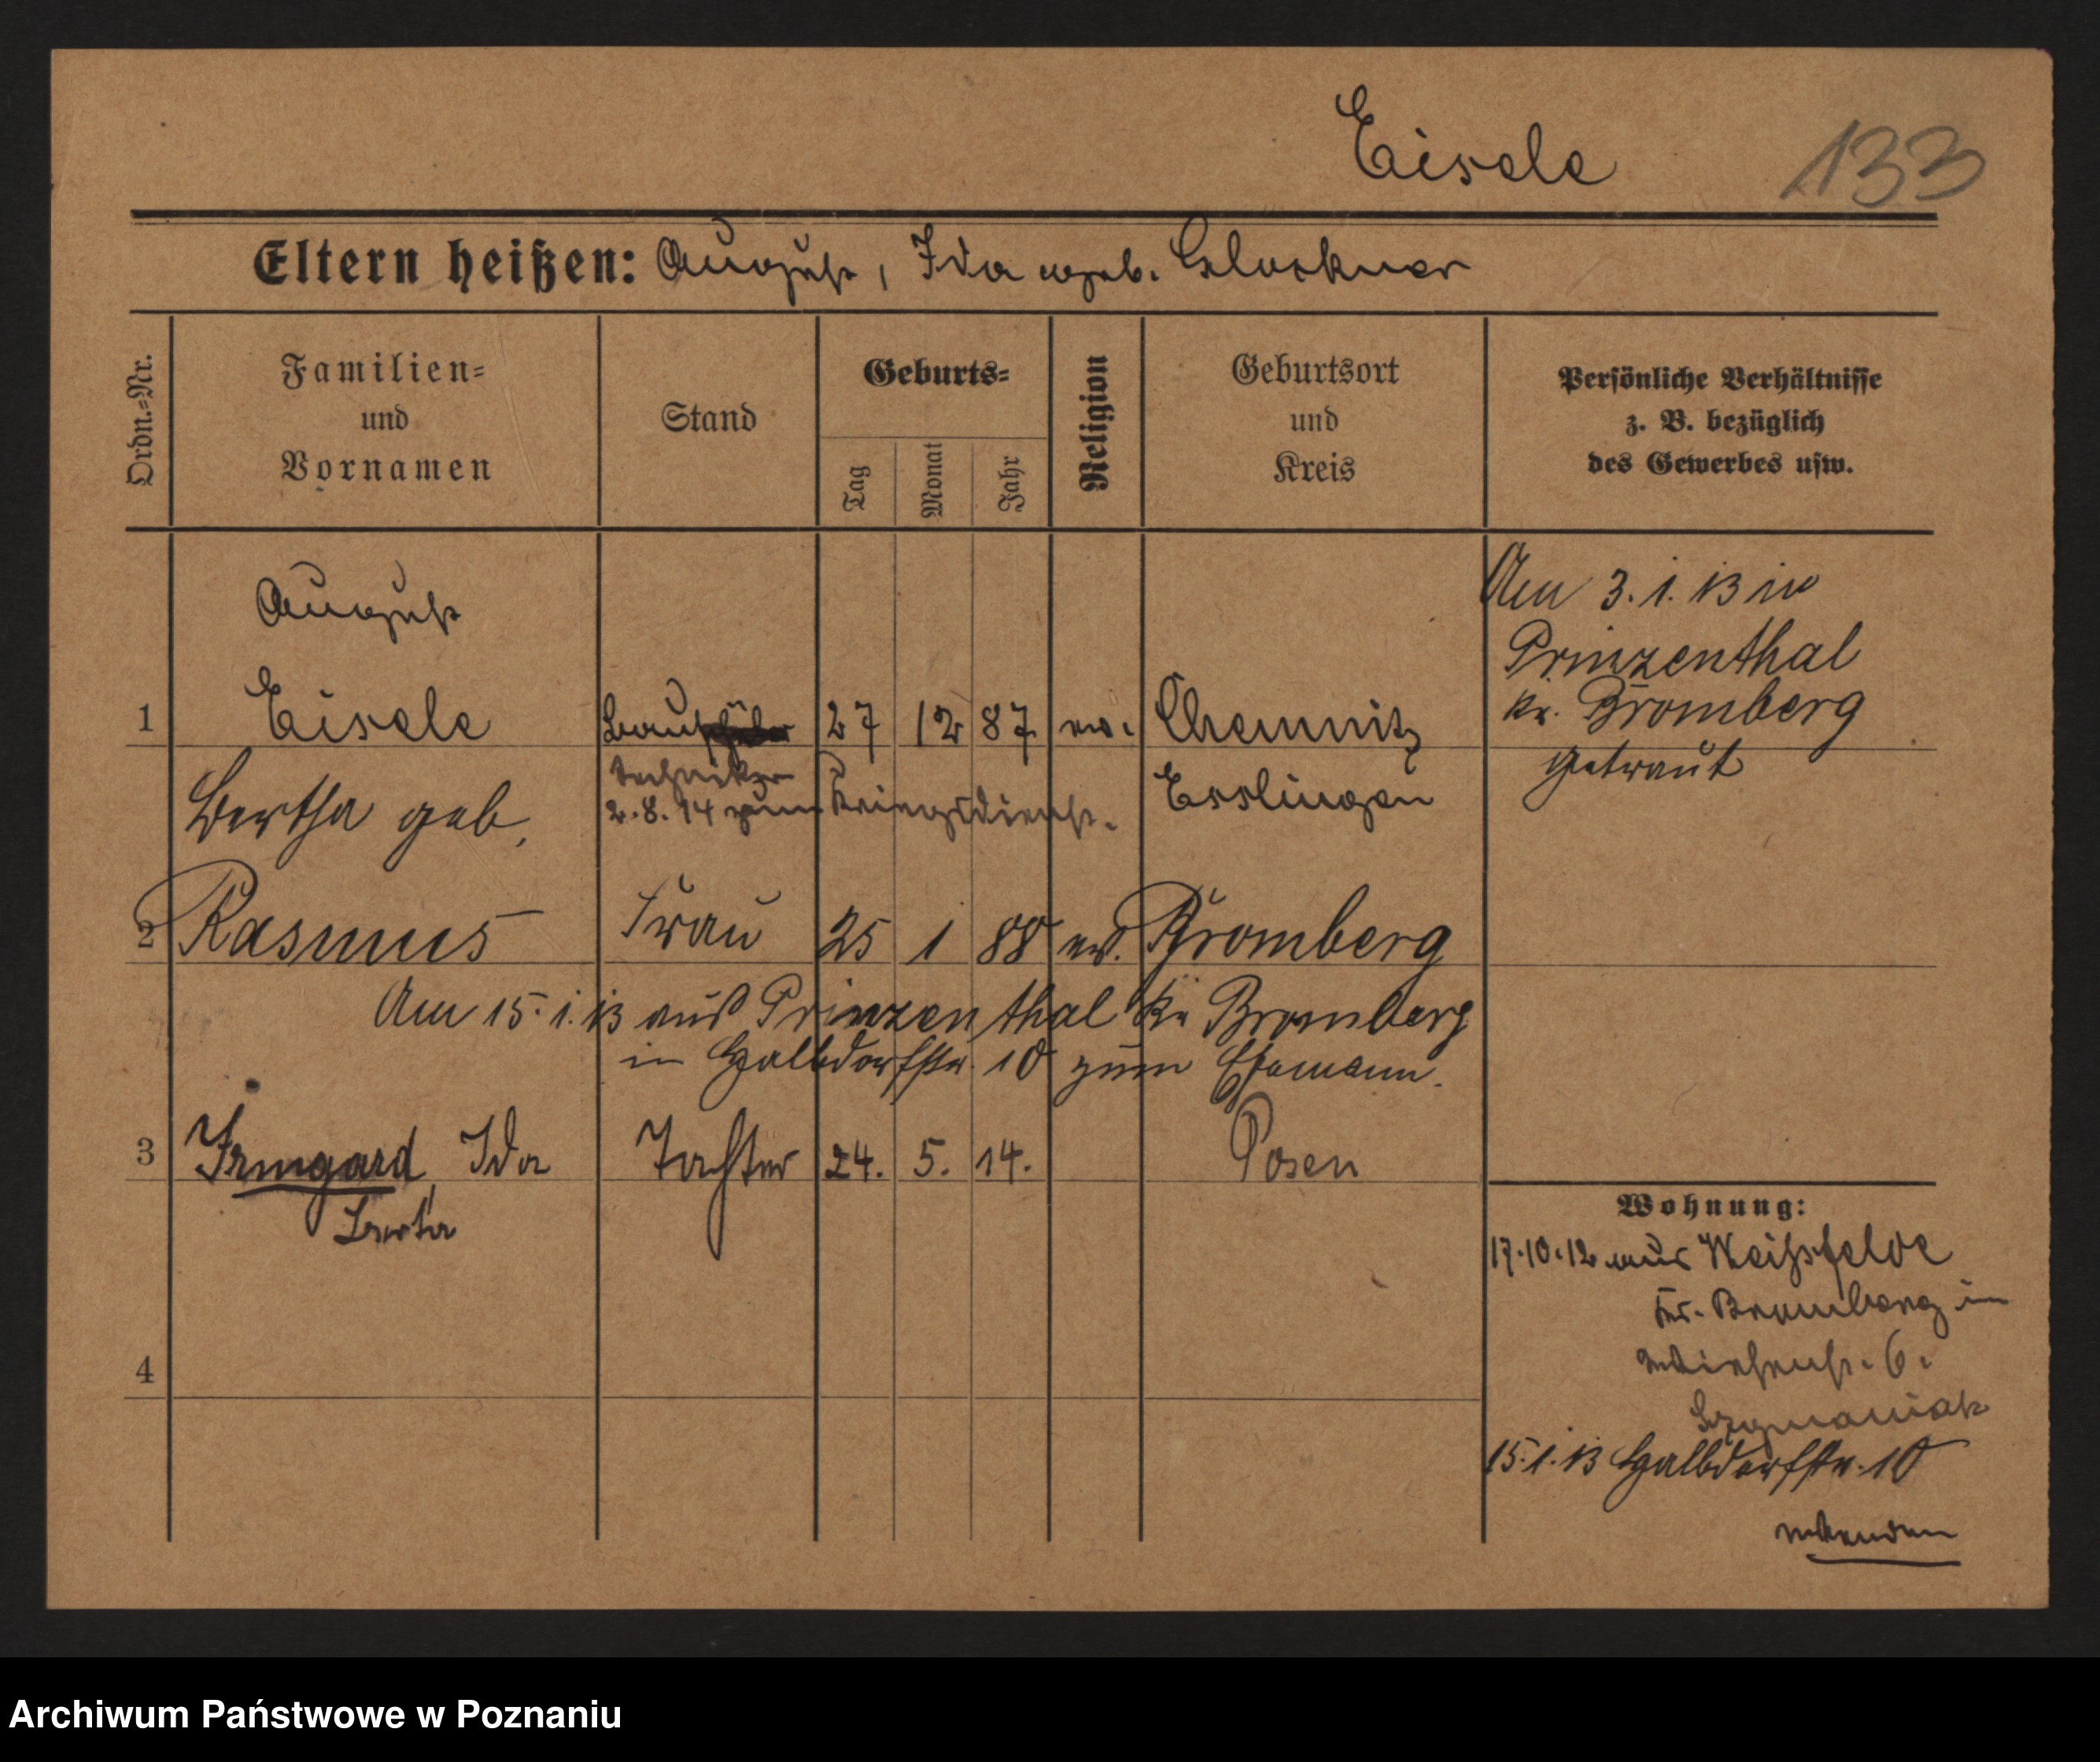 Eisele 133
Eltern heißen: August, Ida geb. Glockner
Ordn.=Nr.
Familien=
und
Vornamen
Stand
Geburts=
Tag
Monat
Jahr
Religion
Geburtsort
und
Kreis
Persönliche Verhältnisse
z. B. bezüglich
des Gewerbes usw.
August
1 Eisele Bau 27 12 87 ev. Chemnitz
techniker Esslingen
2.8.14 zum Kriegsdienst.
Am 3.1.13 in
Prinzenthal
Kr. Bromberg
getraut
Bertha geb.
2 Rasmus Frau 25 1 88 ev. Bromberg
Am 15.1.13 aus Prinzenthal Kr Bromberg
in Halbdorfstr. 10 zum Ehemann.
3 Irmgard Ida Tochter 24. 5. 14. Posen
Berta
4
Wohnung:
17.10.12 aus Weißfelde
Kr. Bromberg in
6.
Szymaniak
15.1.13 Halbdorfstr. 10
wenden
Archiwum Państwowe w Poznaniu